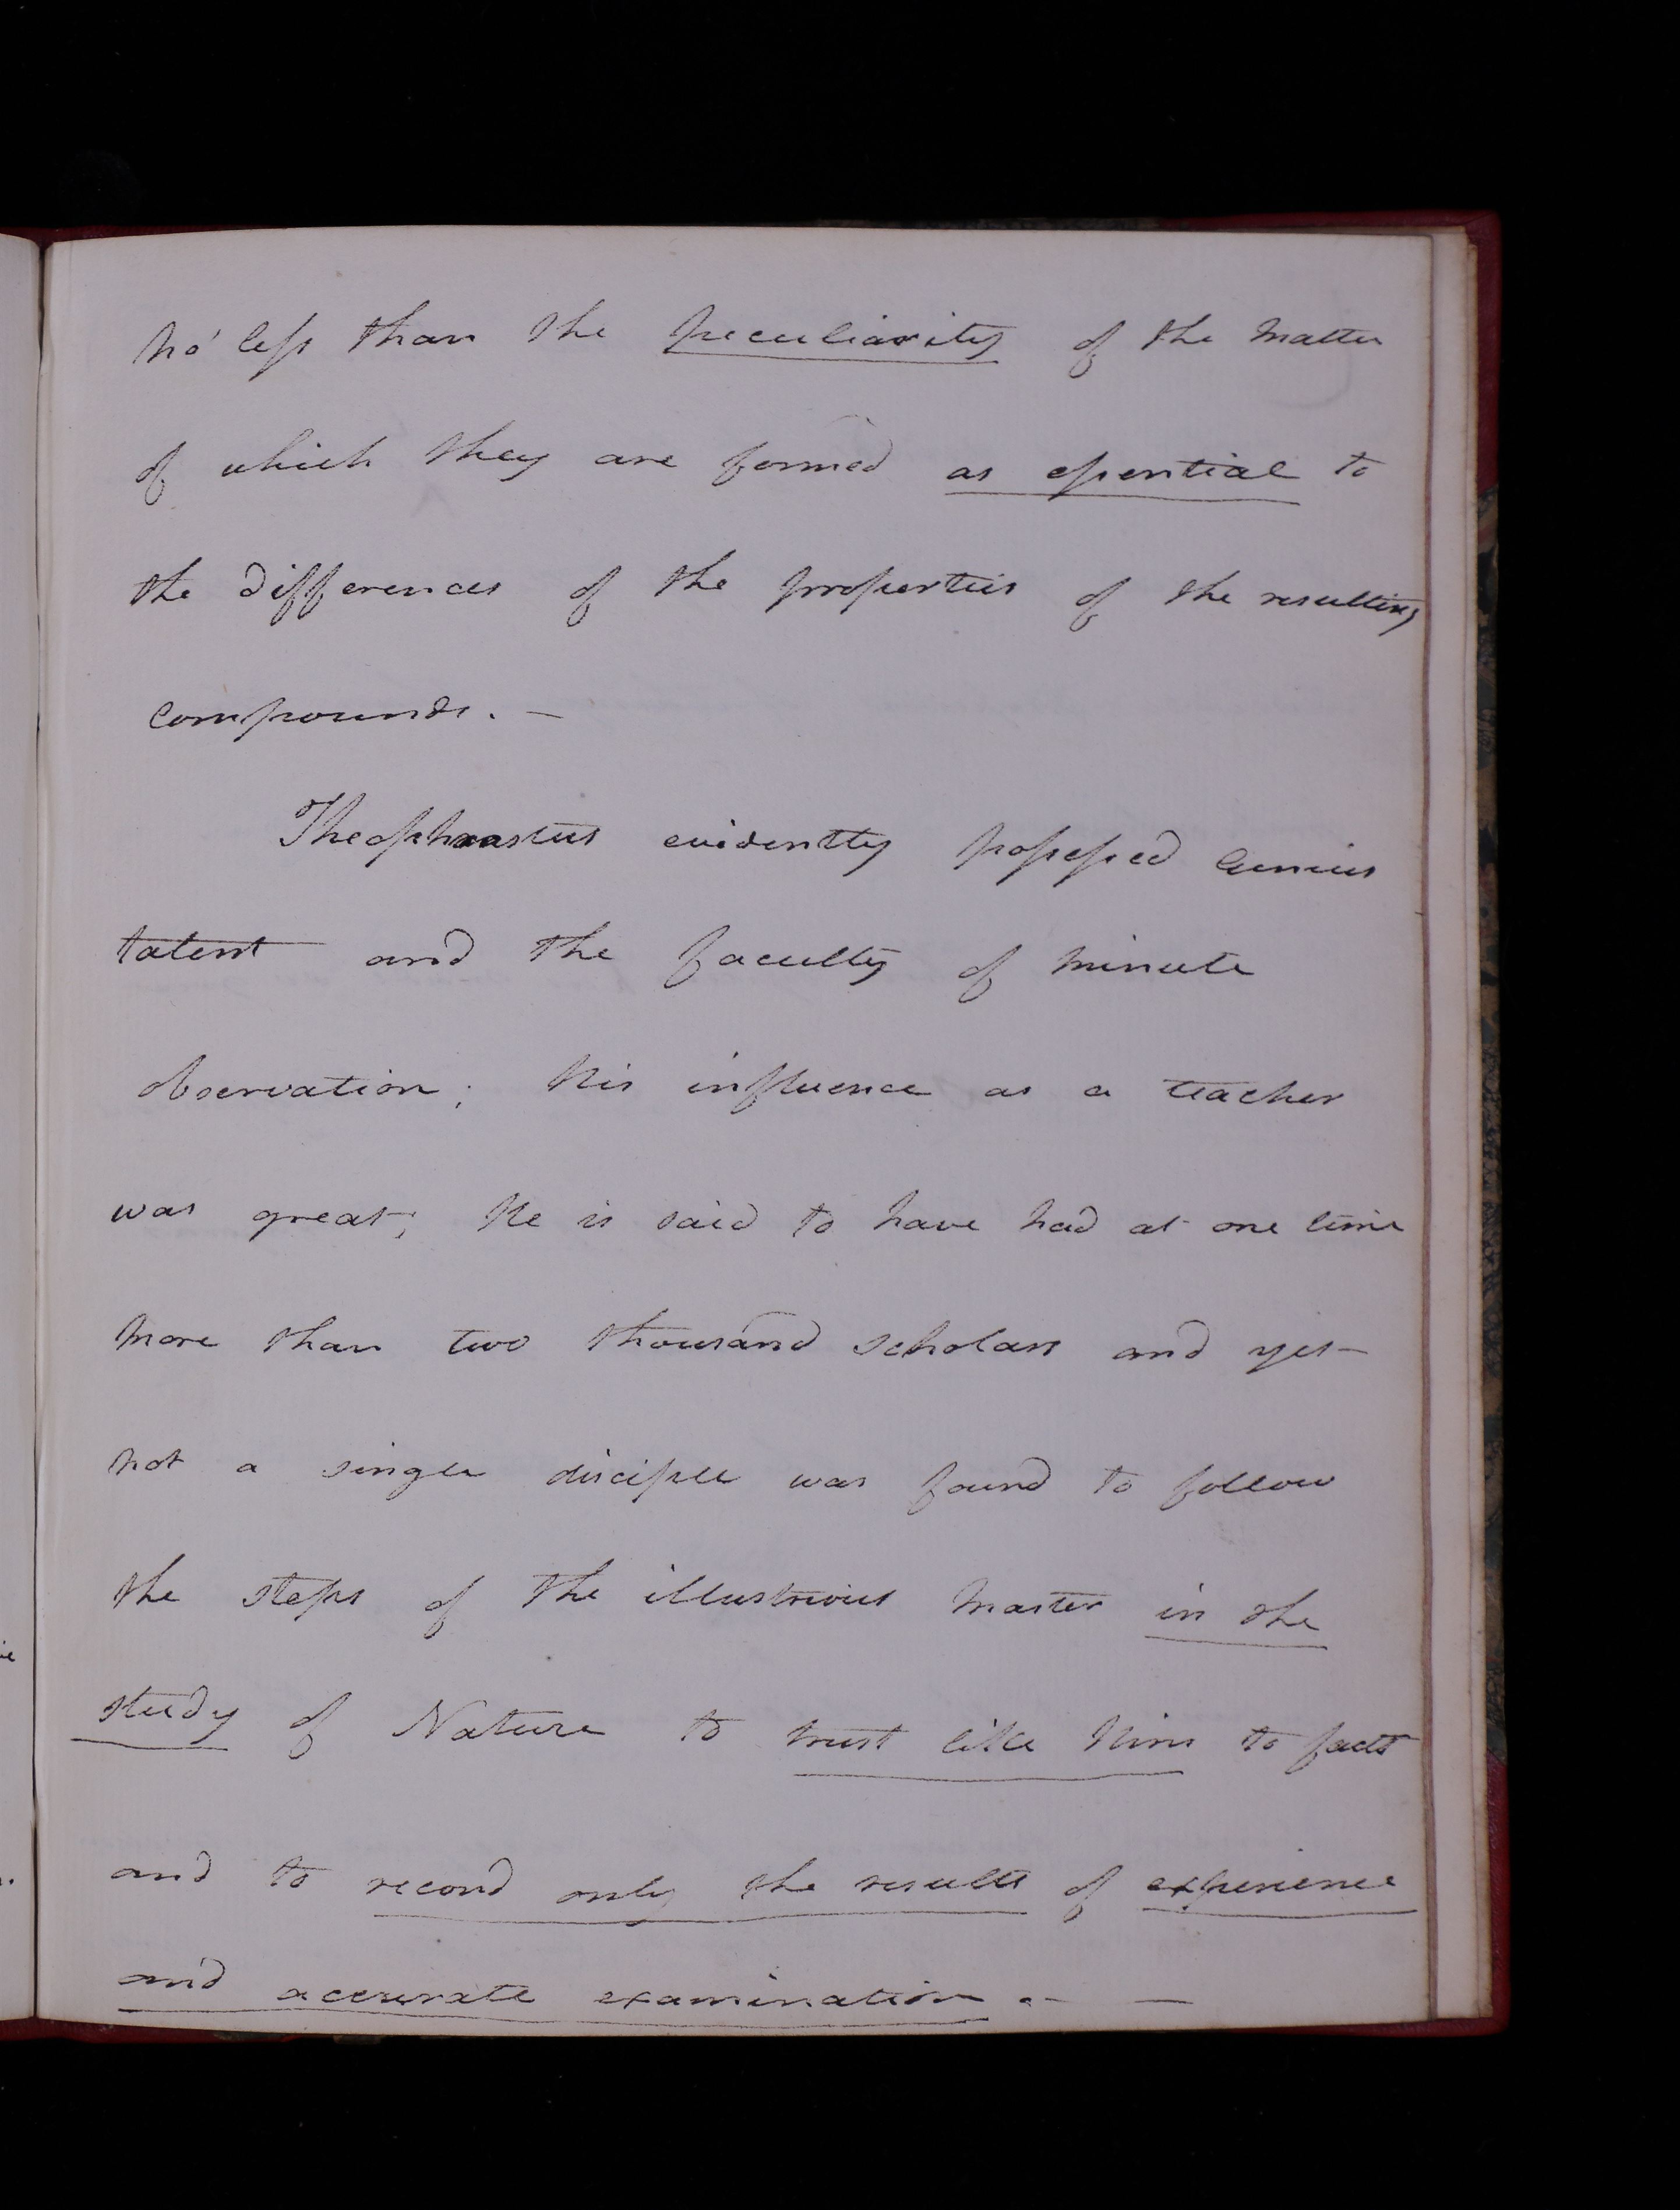 no less than the peculiarity of the matter
of which they are formed as essential to
the differences of the properties of the resulting
compounds. —
Theophrastus evidently possessed Genius
talent and the faculty of minute
observation; his influence as a teacher
was great; he is said to have had at one time
more than two thousand scholars and yet
not a single disciple was found to follow
the steps of the illustrious Master in the
study of Nature to trust like him to facts
and to record only the results of experience
and accurate examination. — —